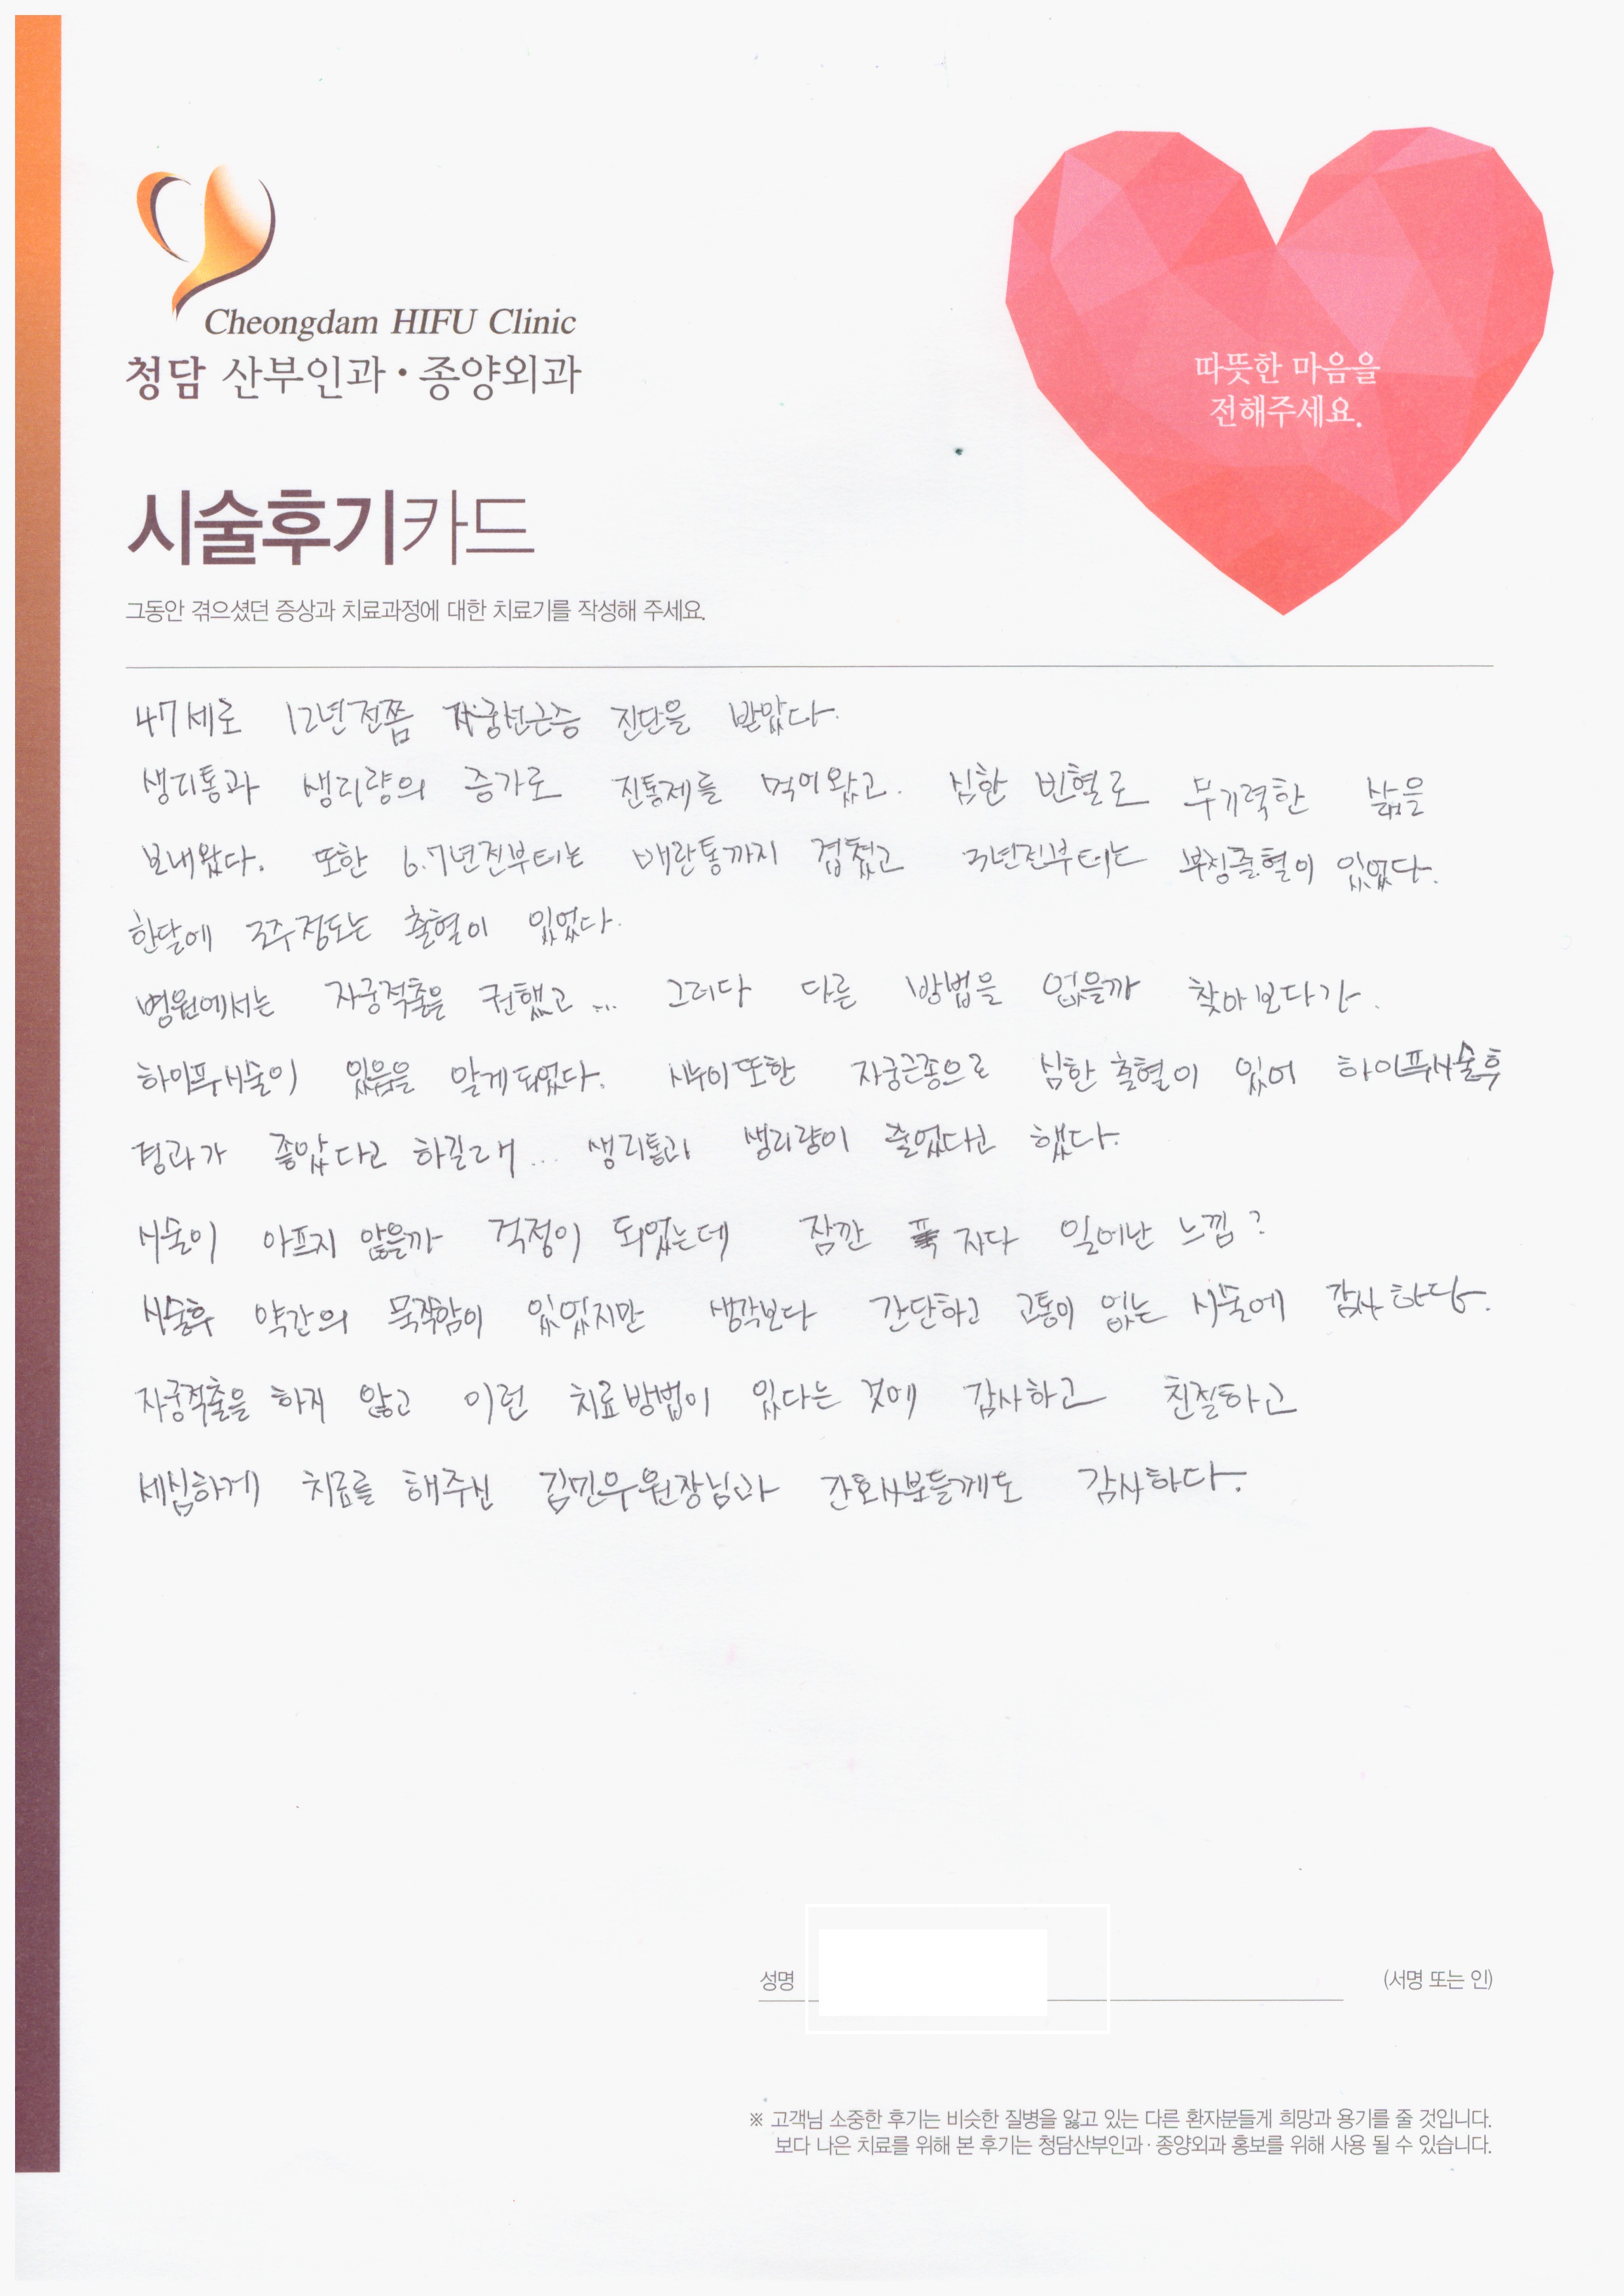 Cheongdam HIFU Clinic
청담 산부인과·종양외과
따뜻한 마음을
전해주세요.
시술후기카드
그동안 겪으셨던 증상과 치료과정에 대한 치료기를 작성해 주세요.
47세로 12년전쯤 자궁선근증 진단을 받았다.
생리통과 생리량의 증가로 진통제를 먹어왔고. 심한 빈혈로 무기력한 삶을
보내왔다. 또한 6.7년전부터는 배란통까지 겹쳤고 3년전부터는 부정출혈이 있었다.
한달에 3주정도는 출혈이 있었다.
병원에서는 자궁적출을 권했고... 그러다 다른 방법을 없을까 찾아보다가.
하이푸시술이 있음을 알게되었다. 시누이또한 자궁근종으로 심한 출혈이 있어 하이푸시술후
경과가 좋았다고 하길래... 생리통과 생리량이 줄었다고 했다.
시술이 아프지 않을까 걱정이 되었는데 잠깐 푹 자다 일어난 느낌?
시술후 약간의 묵직함이 있었지만 생각보다 간단하고 고통이 없는 시술에 감사하다.
자궁적출을 하지 않고 이런 치료방법이 있다는 것에 감사하고 친절하고
세심하게 치료를 해주신 김민우원장님과 간호사분들께도 감사하다.
성명 (서명 또는 인)
※ 고객님 소중한 후기는 비슷한 질병을 앓고 있는 다른 환자분들게 희망과 용기를 줄 것입니다.
보다 나은 치료를 위해 본 후기는 청담산부인과·종양외과 홍보를 위해 사용 될 수 있습니다.